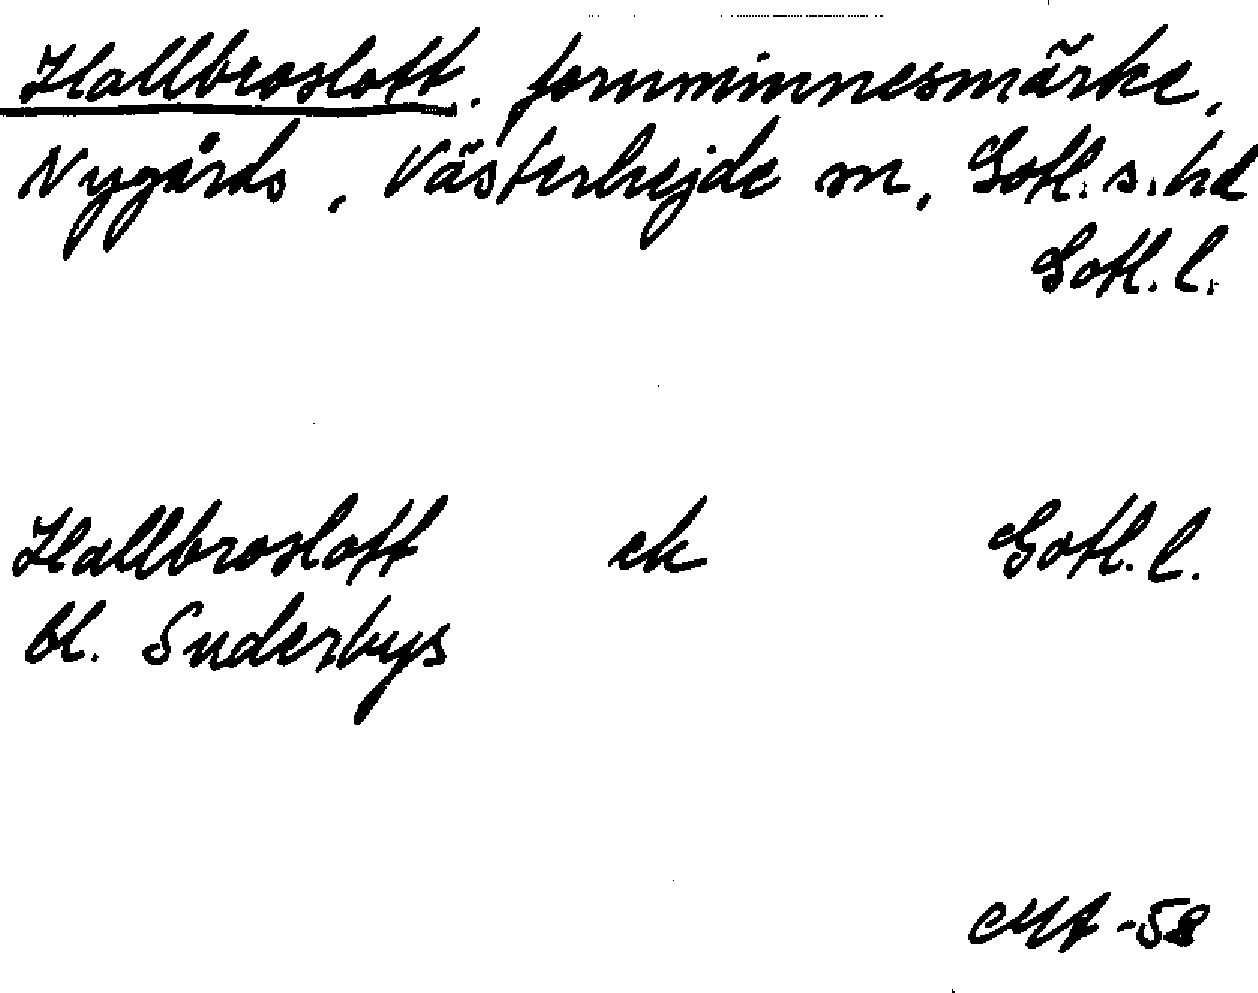 Hallbroslott. fornminnesmärke,
Nygårds, Västerhejde sn, Gotl. s. hd
Gotl. l.
Hallbroslott ek Gotl. l.
bl. Suderbys
-58